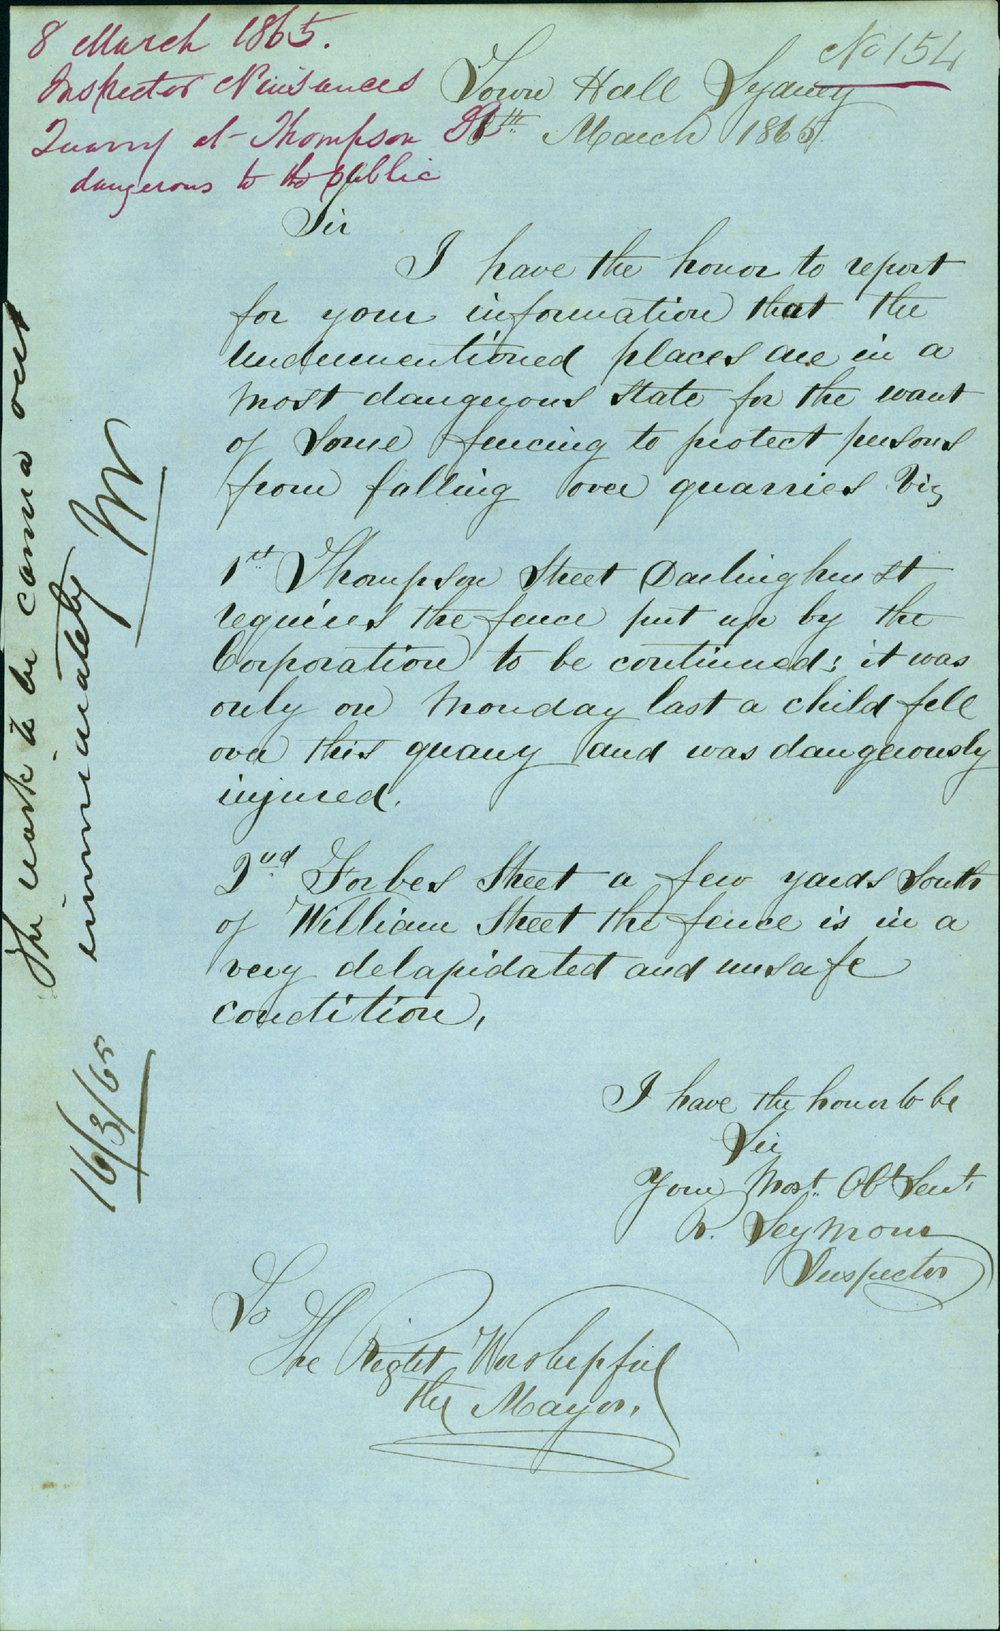 8 March 1865.
Inspector Nuisances
Quarry at Thompson St
dangerous to the public
No 154
Town Hall Sydney
8th March 1865
Sir
I have the honor to report
for your information that the
undermentioned places are in a
most dangerous state for the want
of some fencing to protect persons
from falling over quarries Viz
1st Thompson Street Darlinghurst
requires the fence put up by the
Corporation to be continued: it was
only on Monday last a child fell
over this quarry and was dangerously
injured.
2nd Forbes Street a few yards South
of William Street the fence is in a
very delapidated and unsafe
condition,
I have the honor to be
Sir
Your Most Obt Servt
R. Seymour
Inspector
To
The Right Worshipful
the Mayor.
The work to be carried out
immediately
16/3/65